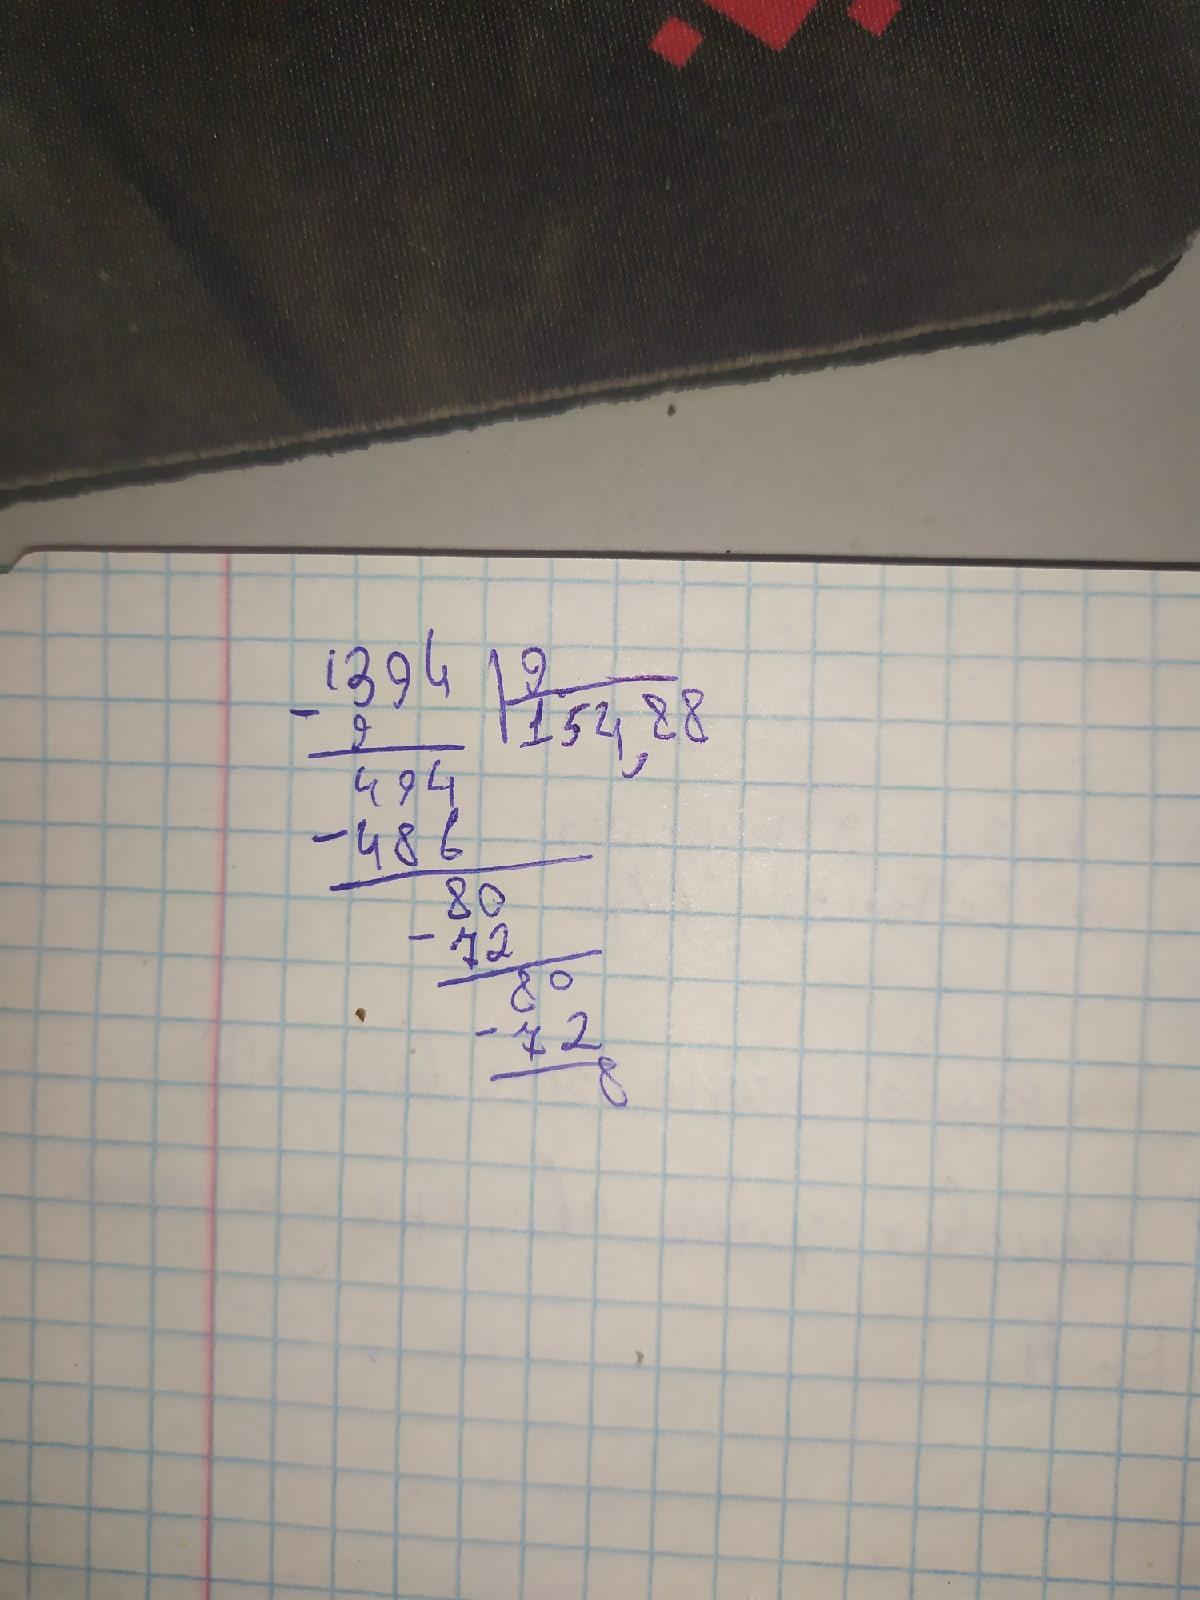 1394 9
- 9 154,88
494
- 486
80
- 72
80
- 72
8